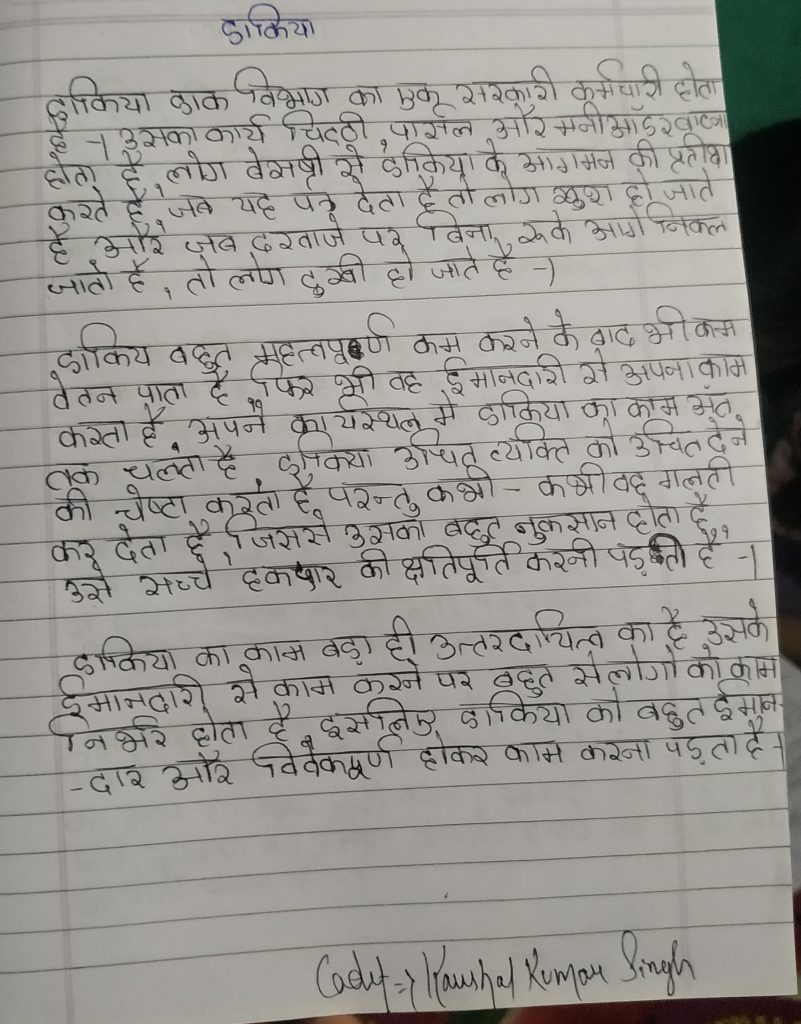 डाकिया
डाकिया डाक विभाग का एक सरकारी कर्मचारी होता
है -। उसका कार्य चिट्ठी, पार्सल और मनीऑडर बाटना
होता है, लोग बेसब्री से डाकिया के आगमन की प्रतीक्षा
करते है, जब यह पत्र देता है तो लोग खुश हो जाते
है, और जब दरवाजे पर बिना रूके आगे निकल
जाता है, तो लोग दुखी हो जाते है -।
डाकिय बहुत महत्वपूर्ण कम करने के बाद भी कम
वेतन पाता है, फिर भी वह ईमानदारी से अपना काम
करता है, अपने कार्यस्थल मे डाकिया का काम अंत
तक चलता है, डाकिया उचित व्यक्ति को उचित देने
की चेष्टा करता है, परन्तु कभी - कभी वह गलती
कर देता है, जिससे उसका बहुत नुकसान होता है,
उसे सच्चे हकदार की क्षतिपूर्ति करनी पड़ती है -।
डाकिया का काम बड़ा ही उत्तरदायित्व का है उसके
ईमानदारी से काम करने पर बहुत से लोगो को काम
निर्भर होता है, इसलिए डाकिया को बहुत ईमान-
-दार और विवेकपूर्ण होकर काम करना पड़ता है -।
Cadit => Kaushal Kumar Singh